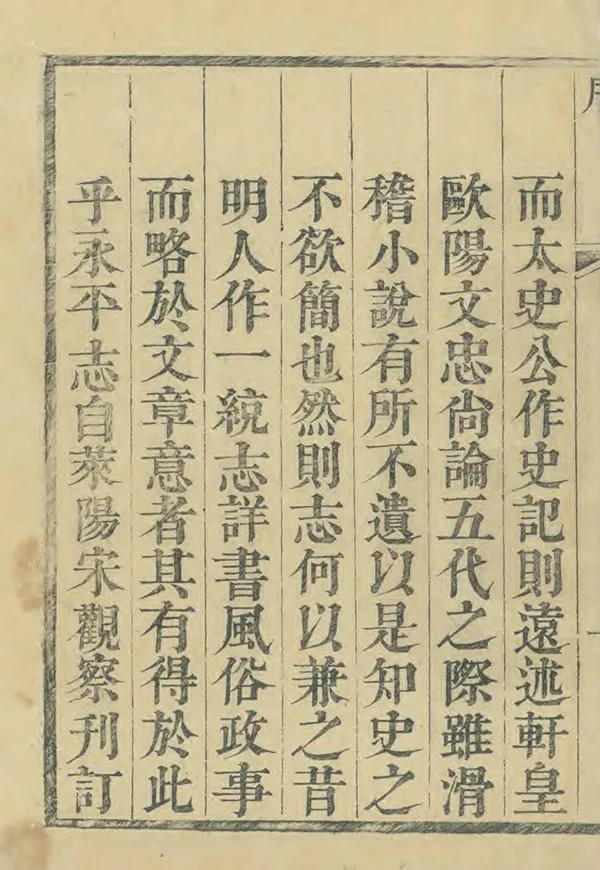 而太史公作史記則遠述軒皇
歐陽文忠尙論五代之際雖滑
稽小說有所不遺以是知史之
不欲簡也然則志何以兼之昔
明人作一統志詳書風俗政事
而略於文章意者其有得於此
乎永平志自萊陽宋觀察刊訂